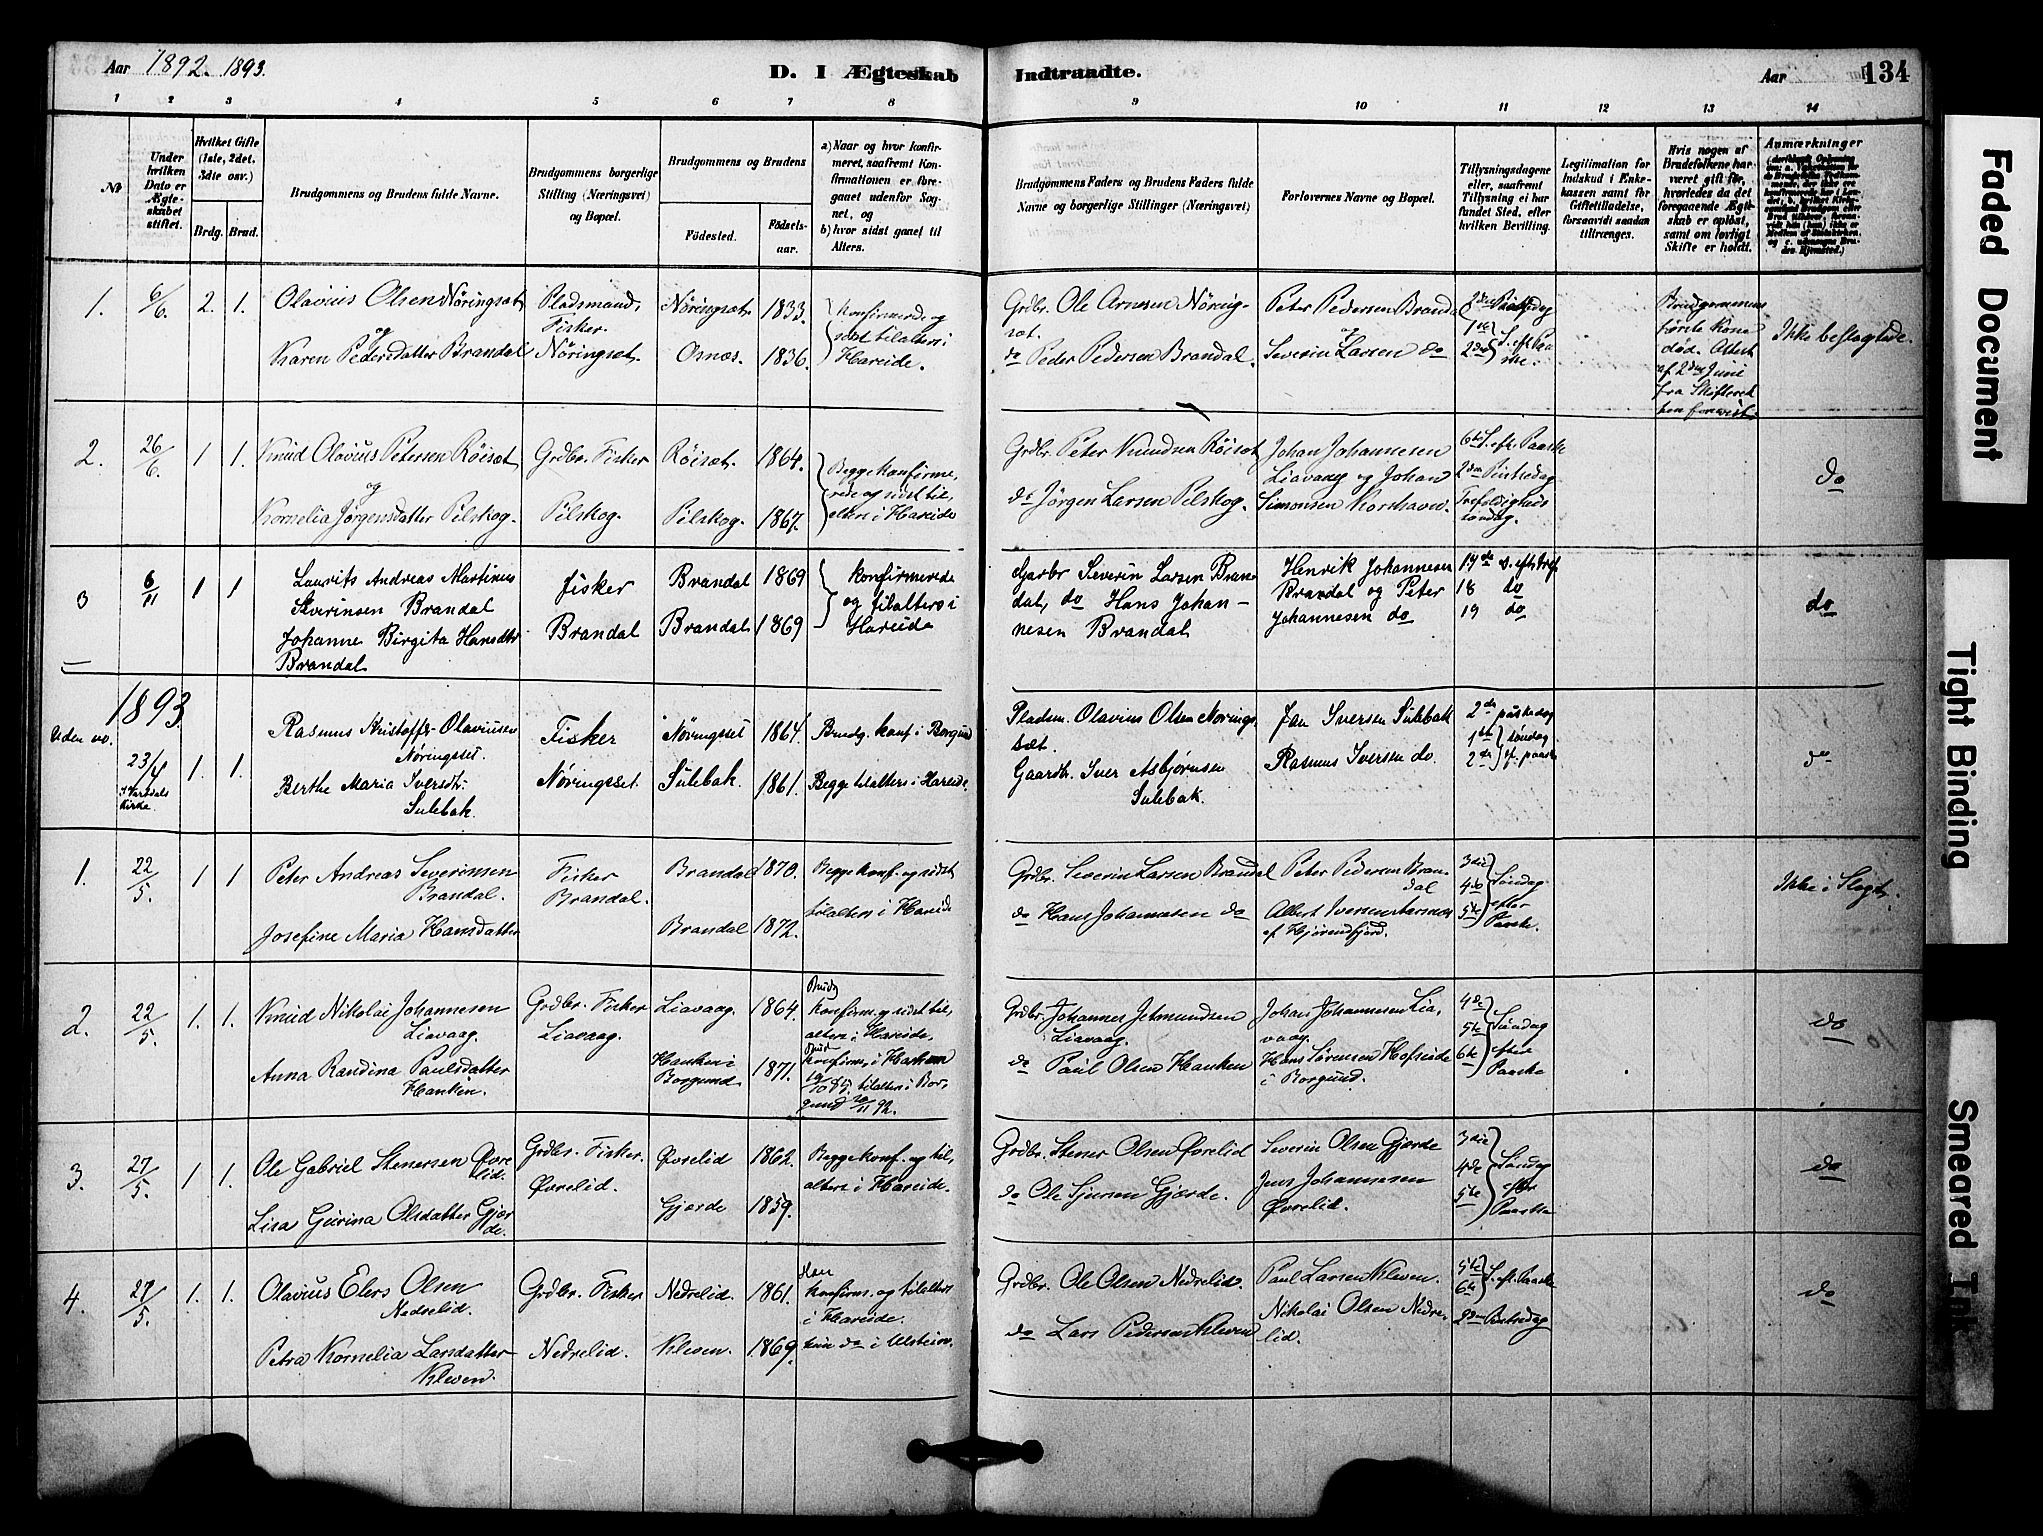 Aar 1892. 1893.
D. I Ægteskab Indtraadte.
Aar 134
1 2 3 4 5 6 7 8 9 10 11 12 13 14
№
Under hvilken Dato er Ægteskabet stiftet.
Hvilket Gifte (1ste, 2det, 3die osv.)
Brdg. Brud.
Brudgommens og Brudens fulde Navne.
Brudgommens borgerlige Stilling (Næringsvei) og Bopæl.
Brudgommens og Brudens
Fødested.
Fødselsaar.
a) Naar og hvor konfirmeret, saafremt Konfirmationen er foregaaet udenfor Sognet, og
b) hvor sidst gaaet til Alters.
Brudgommens Faders og Brudens Faders fulde Navne og borgerlige Stillinger (Næringsvei)
Forlovernes Navne og Bopæl.
Tillysningsdagene eller, saafremt Tillysning ei har fundet Sted, efter hvilken Bevilling.
Legitimation for Indskud i Enkekassen samt for Giftetilladelse, forsaavidt saadan tiltrænges.
Hvis nogen af Brudefolkene har været gift før, hvorledes da det foregaaende Ægteskab er opløst, samt om lovligt Skifte er holdt.
Anmærkninger
1. 6/6. 2. 1.
Olavius Olsen Nøringsæt
og
Karen Pedersdatter Brandal
Pladsmand, Fisker.
Nøringsæt.
Nøringsæt. 1833.
Osnæs. 1836.
Konfirmerede og sidst tilalters i Hareide.
Grdbr. Ole Arnesen Nøringsæt.
do Peder Pedersen Brandal.
Peter Pedersen Brandal
og
Severin Larsen do
2den Paaskedag
1ste
2den S. eft. Paaske.
Brudgommens første Kone død. Attest af 2den Juni fra Skifteretten forevist.
Ikke beslægtede.
2. 26/6. 1 1.
Knud Olavius Petersen Røisæt
og
Kornelia Jørgensdatter Pilskog.
Grdbr. Fisker
Pilskog.
Røisæt. 1864.
Pilskog. 1867.
Begge konfirmerede og sidst tilalters i Hareide
Grdbr. Peter Knudsen Røisæt
do Jørgen Larsen Pilskog.
Johan Johannesen Liavaag og Johan Simonsen Korshavn.
6te S. eft. Paaske
2den Pintsedag
Trefoldigheds søndag.
do
3 6/11 1 1
Laurits Andreas Martinus
Severinsen Brandal
Johanne Birgita Hansdtr
Brandal
Fisker
Brandal
Brandal 1869
Brandal 1869
Konfirmerede og tilalters i Hareide
Garbr Severin Larsen Brandal, do Hans Johannesen Brandal
Henrik Johannesen Brandal og Peter Johannesen do
17de s. eft. tref
18 do
19 do
do
1893
Uden no.
23/4 i Vartdals Kirke. 1. 1.
Rasmus Kristoffer Olaviusen
Nøringsset.
Berthe Maria Iversdtr.
Sulebak.
Fisker
Nøringsset.
Nøringsset 1864.
Sulebak. 1861.
Brudg. konf. i Borgund
Begge tilalters i Hareide.
Pladsm. Olavius Olsen Noringsset.
Gaardbr. Iver Asbjørnsen
Sulebak.
Jan Iversen Sulebak
Rasmus Iversen do.
2den påskedag
1ste søndag
2den ef. paaske
do
1. 22/5. 1 1
Peter Andreas Severinsen
Brandal.
Josefine Maria Hansdatter
Fisker
Brandal.
Brandal 1870.
Brandal 1872.
Begge konf. og sidst tilalters i Hareide
Grdbr. Severin Larsen Brandal
do Hans Johannesen do
Peter Pedersen Brandal
Albert Iversen
af Hjørendfjord.
3die
4de
5te
Søndag efter Paaske.
Ikke i Slegt.
2. 22/5. 1. 1.
Knud Nikolai Johannesen
Liavaag.
Anna Randina Paulsdatter
Hanken.
Grdbr. Fisker
Liavaag.
Liavaag. 1864.
Hanken i Borgund 1871.
Brudg konfirm. og sidst tilalters i Hareide.
Brud konfirm. i
tilalters i Borgund 20/11 92.
Grdbr. Johannes Jetmundsen
Liavaag.
do Paul Olsen Hanken
Johan Johannesen Liavaag.
Hans Sørensen Hofseide
i Borgund.
4de
5te
6te
Søndag efter Paaske
do
3. 27/5. 1 1.
Ole Gabriel Stenersen Øvrelid.
Lisa Gurina Olsdatter Gjerde.
Grdbr. Fisker.
Øvrelid.
Øvrelid 1862.
Gjerde 1859.
Begge konf. og tilalters i Hareide.
Grdbr. Stener Olsen Øvrelid
do Ole Sjursen Gjerde.
Severin Olsen Gjerde
Jens Johannesen
Øvrelid.
3die
4de
5te
Søndag efter Paaske
do
4. 27/5. 1. 1.
Olavius Elers Olsen
Nedrelid.
Petra Kornelia Larsdatter
Kleven.
Grdbr. Fisker
Nedrelid.
Nedrelid. 1861.
Kleven. 1869.
Han konfirm. og tilalters i Hareide.
hun do i Ulstein.
Grdbr. Ole Olsen Nedrelid.
do Lars Pedersen Kleven
Paul Larsen Kleven.
Nikolai Olsen Nedrelid.
5te
6te S. eft. Paaske
do
Faded Document
Tight Binding
Smeared Ink